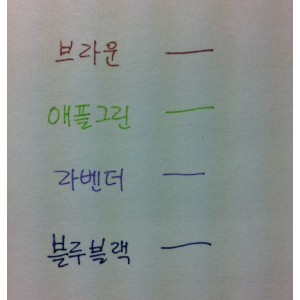 브라운
애플그린
라벤더
블루블랙